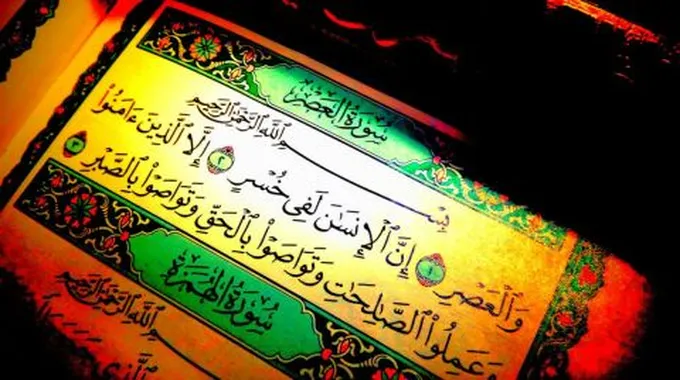 سُورَةُ العَصْرِ
بِسْمِ ٱللَّهِ ٱلرَّحْمَٰنِ ٱلرَّحِيمِ
وَٱلْعَصْرِ ١ إِنَّ ٱلْإِنسَٰنَ لَفِى خُسْرٍ ٢ إِلَّا ٱلَّذِينَ ءَامَنُوا۟
وَعَمِلُوا۟ ٱلصَّٰلِحَٰتِ وَتَوَاصَوْا۟ بِٱلْحَقِّ وَتَوَاصَوْا۟ بِٱلصَّبْرِ ٣
سُورَةُ الهُمَزَةِ
ٱللَّهِ ٱلرَّحْمَٰنِ ٱلرَّحِيمِ
ٱلَّذِى